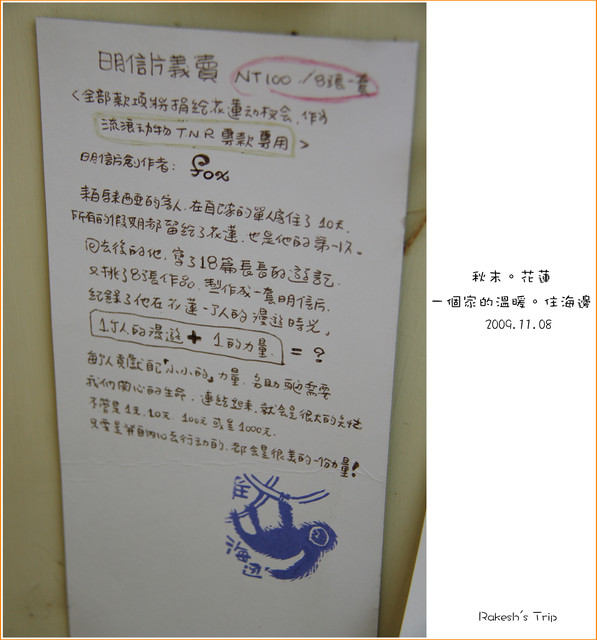 明信片義賣 NT100./8張一套
<全部款項將捐給花蓮动权会,作为
流浪动物TNR專款專用>
明信片創作者: Fox
來自馬來西亞的客人,在自己家的單人房住了10天,
所有的假期都留給了花蓮,也是他的第一次。
回去後的他,寫了18篇長長的遊記,
又挑了8張作品,製作成一套明信片,
紀錄了他在花蓮一个人的漫遊時光,
1个人的漫遊 + 1的力量 = ?
每个人貢獻自己「小小的」力量,
我們關心的生命,連結起來,就会是很大的
不管是1天,10天,100元 或是1000元,
只要是發自內心去行動的,都会是很美的一份力量!
住
海边
秋末。花蓮
一個家的溫暖。住海邊
2009.11.08
Rakesh's Trip